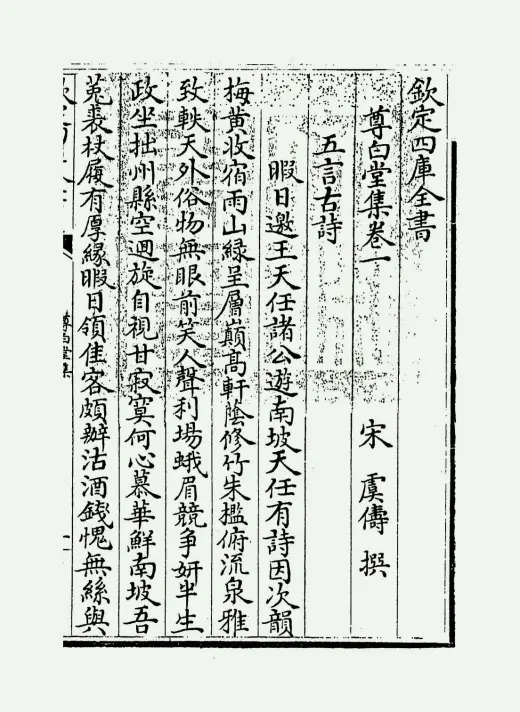 欽定四庫全書
尊白堂集卷一
宋 虞儔 撰
五言古詩
暇日邀王天任諸公遊南坡天任有詩因次韻
梅黄收宿雨山緑呈層巔髙軒蔭修竹朱檻俯流泉雅
致軼天外俗物無眼前笑人聲利場蛾眉競争妍半生
政坐拙州縣空迴旋自視甘寂寞何心慕華鮮南坡吾
菟裘杖履有厚緣暇日領佳客頗辦沽酒錢愧無絲與
尊白堂集